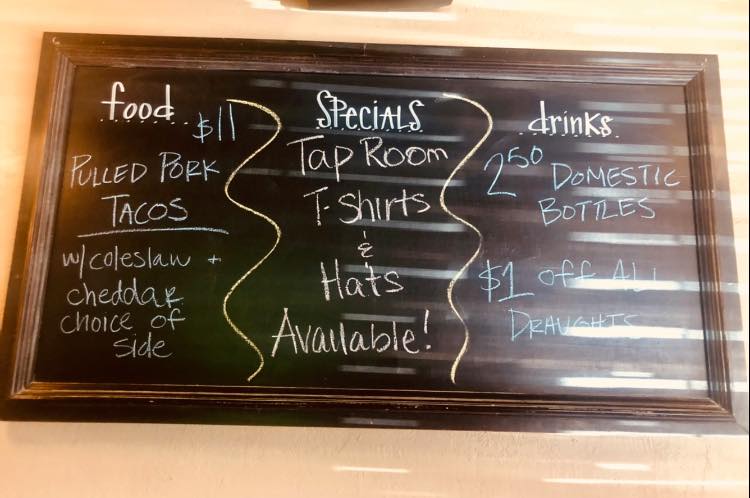 food
$11
PULLED PORK
TACOS
w/coleslaw +
cheddar
choice of
side
SPeciALS
Tap Room
T-Shirts
&
Hats
Available!
drinks
2⁵⁰ DOMESTIC
BOTTLES
$1 off ALL
DRAUGHTS